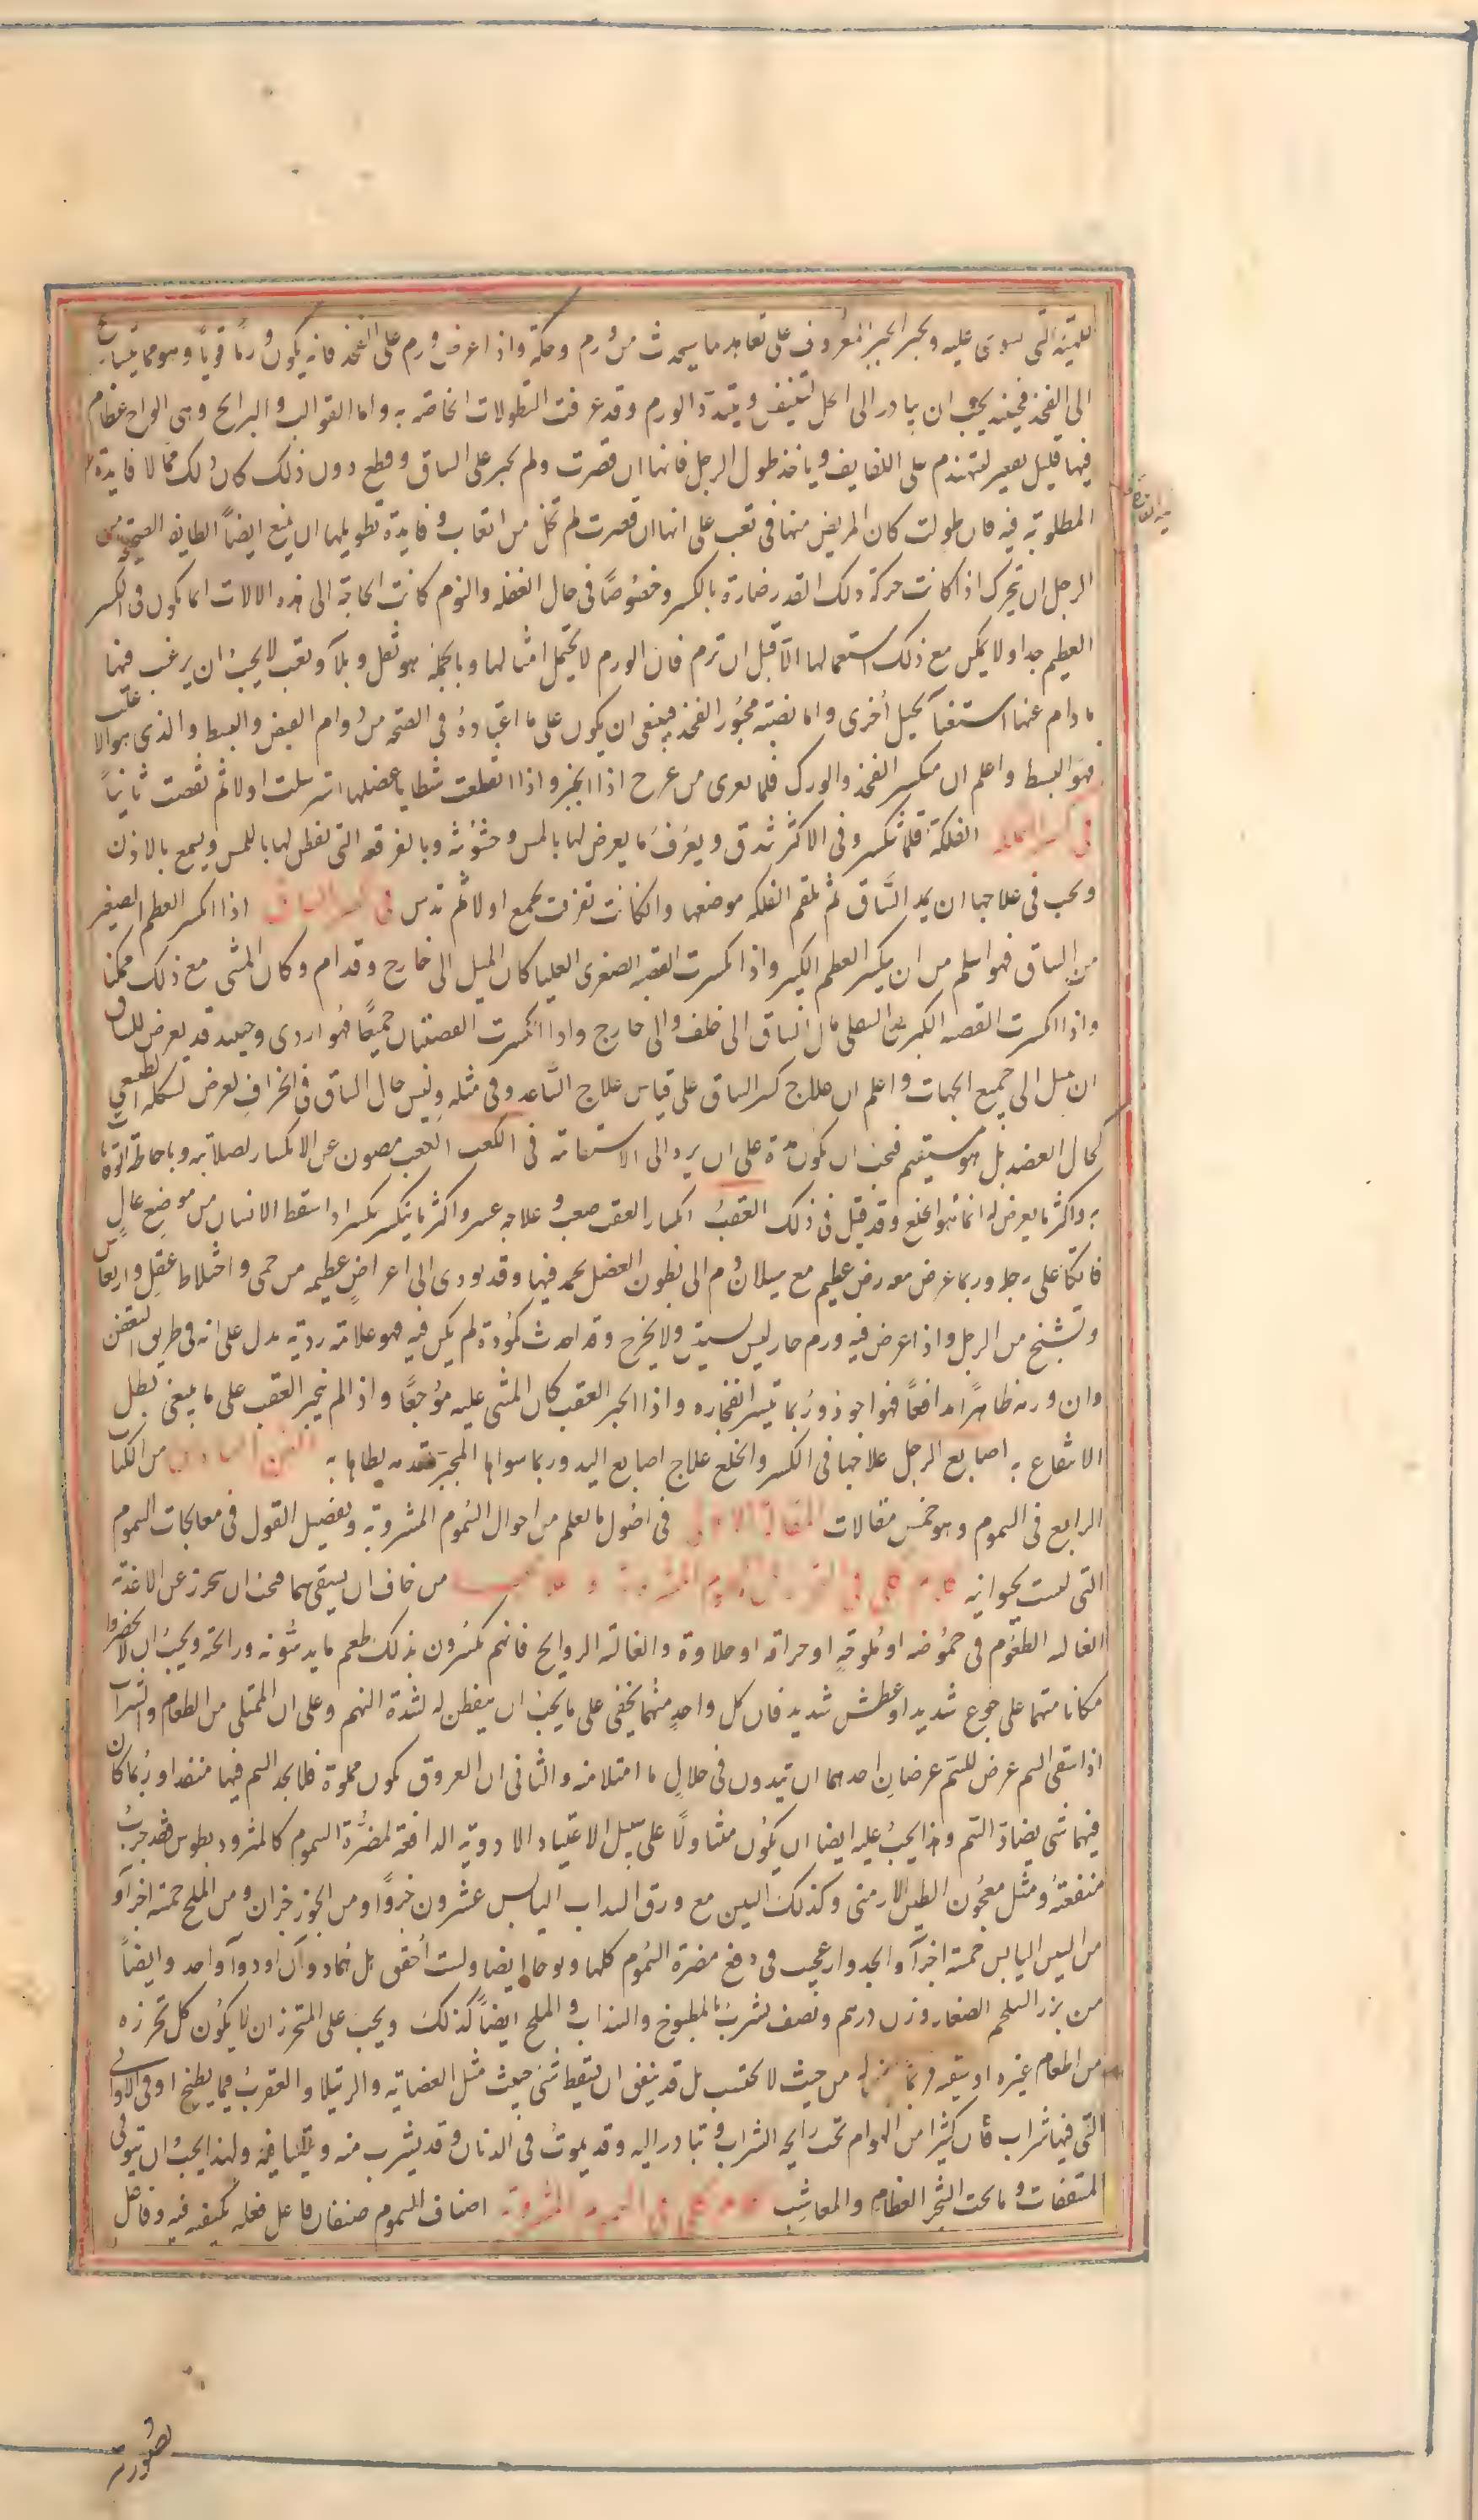 على تعاهد ما يحدث من ورم وحكة واذا عرض ورم على الفخذ فانه يكون ورمًا قويًا وهو مما يتسارع
الى الفخذ فحينئذ يجب ان يبادر الى الحل لتنفس الورم وقد عرفت النطولات الخاصة به واما القوالب والبرابخ وهى الواح عظام
فيها قليل تقعير لتهندم على اللفايف وياخذ طول الرجل فانها ان قصرت ولم تجبر على الساق وقطع دون ذلك كان ذلك مما لا فايدة
المطلوبة فيه فان طولت كان المريض منها فى تعب على انها ان قصرت لم تخل من اتعاب وفايدة تطويلها ان يمنع ايضاً الطايفة الصحيحة من
الرجل ان تتحرك اذا كانت حركة ذلك القدر ضارة بالكسر وخصوصًا فى حال الغفلة والنوم كانت الحاجة الى هذه الالات انما يكون فى الكسر
العظيم جدا ولا يمكن مع ذلك استعمالها الّا قبل ان ترم فان الورم لا يحتمل امثالها وبالجملة هو ثقل وبلآ وتعب لا يجب ان يرغب فيها
ما دام عنها استغنآ بحيل اخرى واما نصبة مجبور الفخذ فينبغى ان يكون على ما اعتياده فى الصحة من دوام القبض والبسط والذى هو الاغلب
فهو البسط واعلم ان منكسر الفخذ والورك قلما يعرى من عرج اذا انجبر واذا انقلعت شظايا عضلها استرسلت اولا ثم تقلصت ثانياً
فى كسر الفلكة الفلكة قلما تنكسر وفى الاكثر تندق ويعرف ما يعرض لها باللمس وخشونة وبالفرقعة التى تفطن لها باللمس ويسمع بالاذن
ويجب فى علاجها ان يمد السّاق ثم تلقم الفلكة موضعها وان كانت تفرقت يجمع اولا ثم تدس فى كسر الساق اذا انكسر العظم الصغير
من الساق فهو اسلم من ان ينكسر العظم الكبير واذا انكسرت القصبة الصغرى العليا كان الميل الى خارج وقدام وكان المشى مع ذلك ممكنا
واذا انكسرت القصبة الكبرى السفلى مال الساق الى خلف والى خارج واذا انكسرت القصبتان جميعًا فهو اردى وحينئذ قد يعرض للساق
ان يميل الى جميع الجهات واعلم ان علاج كسر الساق على قياس علاج السّاعد وفى مثله وليس حال الساق فى انحراف يعرض لشكله الطبيعى
كحال العضد بل هو مستقيم فيجب ان يكون مدة على ان يرد الى الاستقامة فى الكعب الكعب مصون عن الانكسار لصلابته وباحاطة الوقايات
به واكثر ما يعرض له انما هو الخلع وقد قيل فى ذلك العقب انكسار العقب صعب وعلاجه عسر واكثر ما ينكسر بكسر اذا سقط الانسان من موضع عال
فاتكا على رجله وربما عرض معه رض عظيم مع سيلان دم الى بطون العضل يجمد فيها وقد يودى الى اعراض عظيمة من حمى واختلاط عقل وارتعاش
وتشنج من الرجل واذا عرض فيه ورم حار ليس يسيل ولا يخرج وقد احدث كمودة لم يكن فيه فهو علامة ردية يدل على انه فى طريق التعفن
وان ورمه ظاهرًا مدافعًا فهو اجود وربما تيسر انفجاره واذا انجبر العقب كان المشى عليه موجعًا واذا لم ينجبر العقب على ما ينبغى بطل
الانتفاع به اصابع الرجل علاجها فى الكسر والخلع علاج اصابع اليد وربما سواها المجبر بقدمه يطاها به الفن السادس من الكتاب
الرابع فى السموم وهو خمس مقالات المقالة الاولى فى اصول ما يعلم من احوال السّموم المشروبة وتفصيل القول فى معالجات السموم
التى ليست بحيوانية من خاف ان يسقى سما فيجب ان يتحرز عن الاغذية
الغالبة الطعوم فى حموضة او ملوحة او حرافة او حلاوة والغالبة الروايح فانهم يكسرون بذلك طعم ما يدسونه ورائحته ويجب ان لا يحضروا
مكانا متهما على جوع شديد او عطش شديد فان كل واحد منهما يخفى على ما يجب ان يتفطن له لشدة النهم وعلى ان الممتلى من الطعام والشراب
اذا سقى السم عرض للسم عرضان احدهما ان تيدون فى خلال ما امتلا منه والثانى ان العروق تكون مملوة فلا يجد السم فيها منفذا وربما كان
فيها شى يضاد السّم ولهذا يجب عليه ايضا ان يكون متناولًا على سبيل الاعتياد الادوية الدافعة لمضرة السموم كالمثروديطوس فقد جرب
منفعته ومثل معجون الطين الارمنى وكذلك التين مع ورق السداب اليابس عشرون جزوًا ومن الجوز جزان ومن الملح خمسة اجزآ و
من التين اليابس خمسة اجزآ والجدوار عجيب فى دفع مضرة السّموم كلها وبوحا ايضا ولست احقق بل هما دوآن او دوآ واحد وايضاً
من بزر السلجم الصغار وزن درهم ونصف يشرب بالمطبوخ والسذاب والملح ايضاً كذلك ويجب على المتحرز ان لا يكون كل تحرزه
من اطعام غيره او سقيه فربما من حيث لا يحتسب بل قد ينبغى ان يسقط شى خبيث مثل العضاية والرتيلا والعقرب فيما يطبخ او فى الاوانى
التى فيها شراب فان كثيرا من الهوام تحب رايحة الشراب وتبادر اليه وقد يموت فى الدنان وقد يشرب منه ويتقيأ فيه ولهذا يجب ان يتوقى
المسقفات وما تحت الشجر العظام والمعاشب كلام كلى فى السموم المشروبة اصناف السموم صنفان فاعل فعله بكيفية فيه وفاعل
بصورته